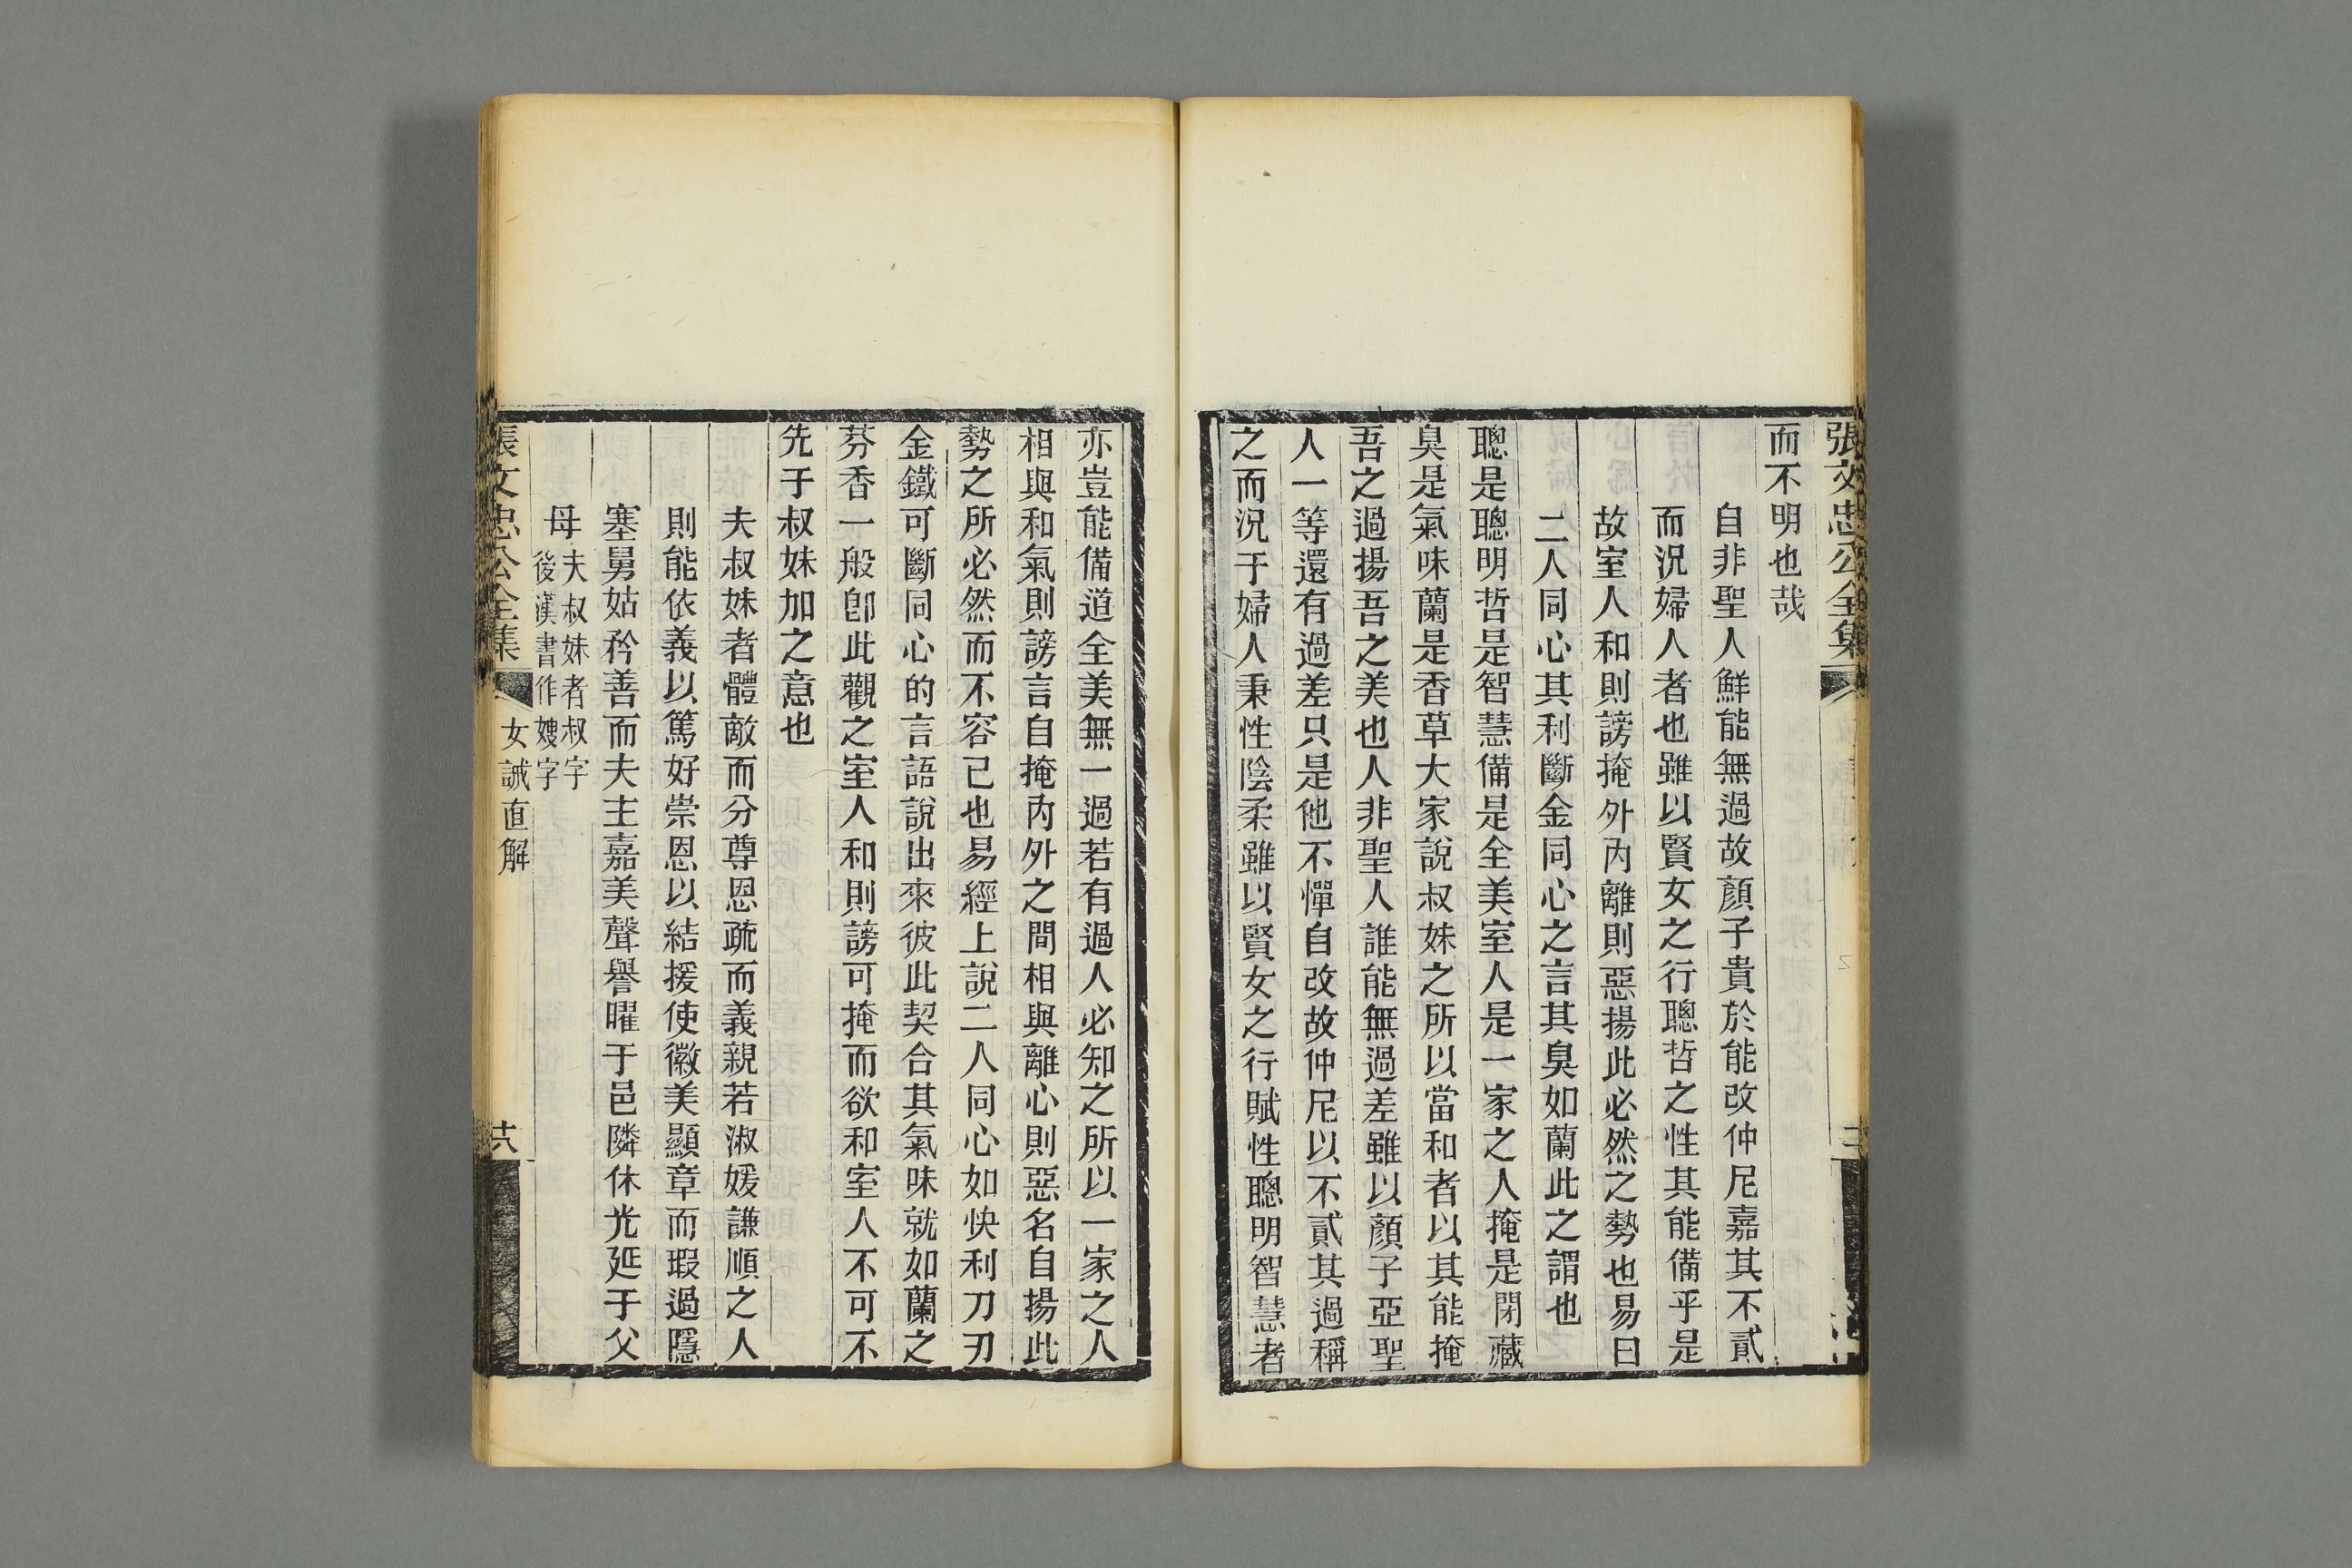 張文忠公全集
而不明也哉
自非聖人鮮能無過故顏子貴於能改仲尼嘉其不貳
而況婦人者也雖以賢女之行聰哲之性其能備乎是
故室人和則謗掩外內離則惡揚此必然之勢也易曰
二人同心其利斷金同心之言其臭如蘭此之謂也
聰是聰明哲是智慧備是全美室人是一家之人掩是閉藏
臭是氣味蘭是香草大家說叔妹之所以當和者以其能掩
吾之過揚吾之美也人非聖人誰能無過差雖以顏子亞聖
人一等還有過差只是他不憚自改故仲尼以不貳其過稱
之而況于婦人秉性陰柔雖以賢女之行賦性聰明智慧者
亦豈能備道全美無一過若有過人必知之所以一家之人
相與和氣則謗言自掩內外之間相與離心則惡名自揚此
勢之所必然而不容已也易經上說二人同心如快利刀刃
金鐵可斷同心的言語說出來彼此契合其氣味就如蘭之
芬香一般卽此觀之室人和則謗可掩而欲和室人不可不
先于叔妹加之意也
夫叔妹者體敵而分尊恩疏而義親若淑媛謙順之人
則能依義以篤好崇恩以結援使徽美顯章而瑕過隱
塞舅姑矜善而夫主嘉美聲譽曜于邑隣休光延于父
母夫叔妹者叔字
後漢書作嫂字
張文忠公全集
女誡直解
十六